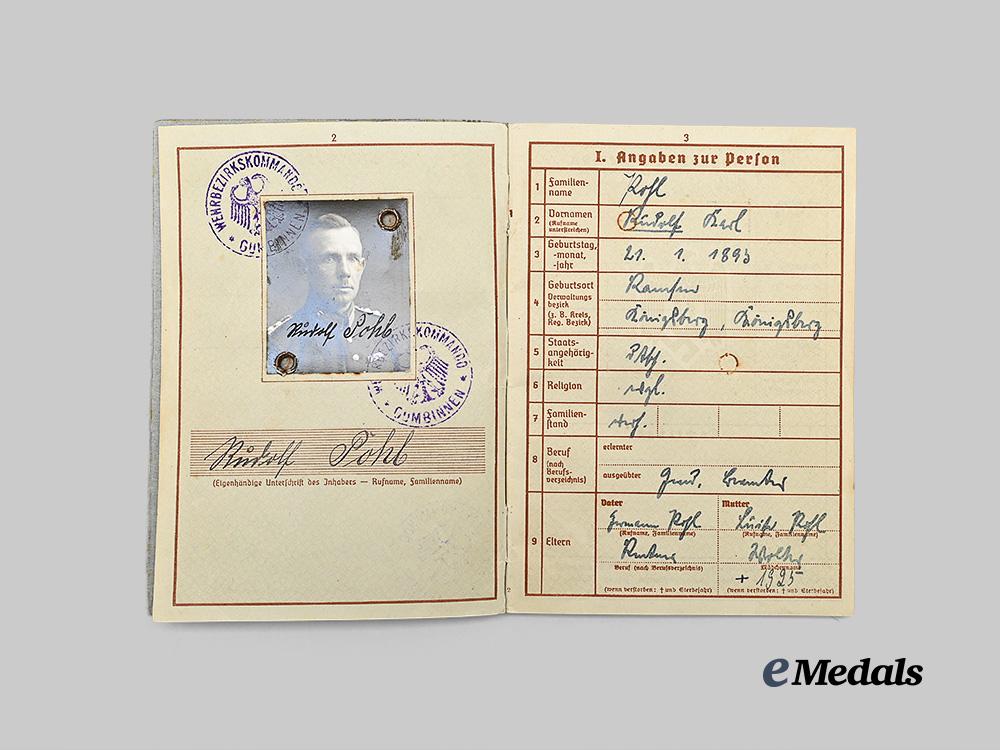 2
WEHRBEZIRKSKOMMANDO
GUMBINNEN
Rudolf Pohl
WEHRBEZIRKSKOMMANDO
GUMBINNEN
Rudolf Pohl
(Eigenhändige Unterschrift des Inhabers — Rufname, Familienname)
3
I. Angaben zur Person
1 Familien-
name
Pohl
2 Vornamen
(Rufname
unterstreichen)
Rudolf Karl
3 Geburtstag,
-monat,
-jahr
21. 1. 1893
4 Geburtsort
Verwaltungs
bezirk
(z. B. Kreis,
Reg. Bezirk)
Königsberg, Königsberg
5 Staats-
angehörig-
keit
6 Religion
evgl.
7 Familien-
stand
verh.
8 Beruf
(nach
Berufs-
verzeichnis)
erlernter
ausgeübter
Gend. Beamter
9 Eltern
Vater
Hermann Pohl
(Rufname, Familienname)
Rentner
Beruf (nach Berufsverzeichnis)
(wenn verstorben: † und Sterbejahr)
Mutter
Luise Pohl
(Rufname, Familienname)
Wolter
Mädchenname
+ 1925
(wenn verstorben: † und Sterbejahr)
eMedals